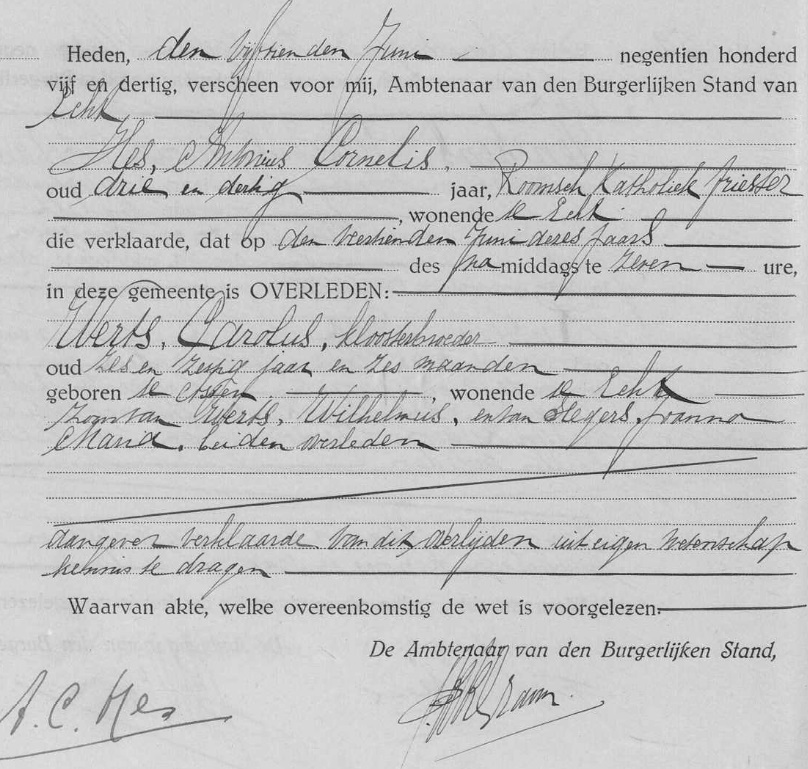 Heden, den vijftienden Juni negentien honderd
vijf en dertig, verscheen voor mij, Ambtenaar van den Burgerlijken Stand van
Echt
Hes, Antonius Cornelis.
oud drie en dertig jaar, Roomsch Katholiek Priester
, wonende te Echt
die verklaarde, dat op den veertienden Juni dezes jaars
des namiddags te zeven ure,
in deze gemeente is OVERLEDEN:
Werts, Carolus, kloosterbroeder
oud zes en zestig jaar en zes maanden
geboren te , wonende te Echt
zoon van Werts, Wilhelmus, en van Segers, Joanna
Maria, beiden overleden
aangever verklaarde van dit overlijden uit eigen wetenschap
kennis te dragen
Waarvan akte, welke overeenkomstig de wet is voorgelezen.
De Ambtenaar van den Burgerlijken Stand,
A. C. Hes